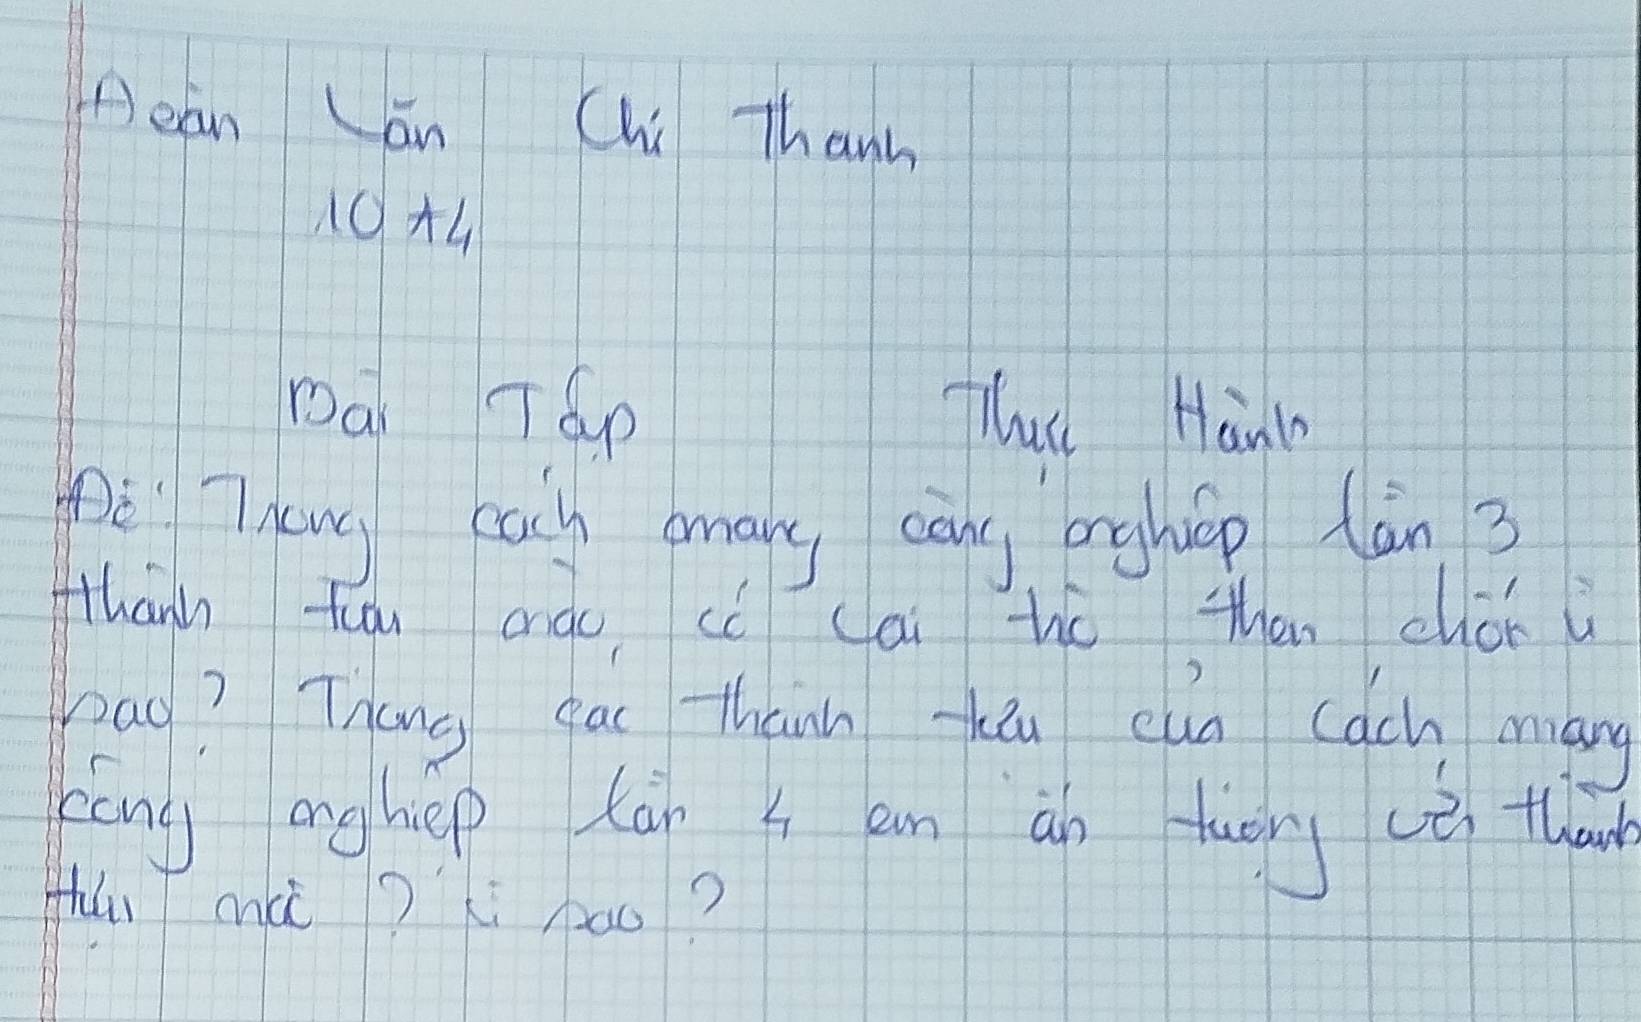 Đoàn Văn Chí Thanh
10A4
Bài Tập Thực Hành
Đề: Trong cách mạng công nghiệp lần 3
thành tựu nào có vai trò then chốt vì
sao? Trong các thành tựu của cách mạng
công nghiệp lần 4 em ấn tượng với thành
tựu nào? vì sao?